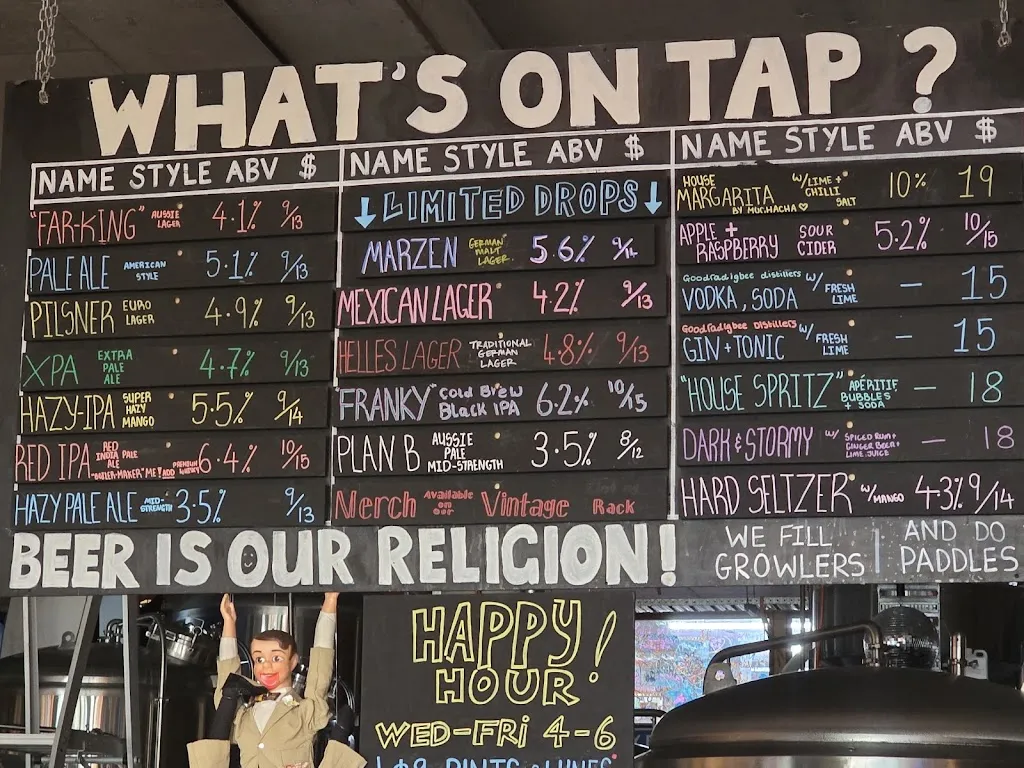 WHAT'S ON TAP ?
NAME STYLE ABV $
"FAR-KING" AUSSIE LAGER 4.1% 9/13
PALE ALE AMERICAN STYLE 5.1% 9/13
PILSNER EURO LAGER 4.9% 9/13
XPA EXTRA PALE ALE 4.7% 9/13
HAZY-IPA SUPER HAZY MANGO 5.5% 9/14
RED IPA RED INDIA PALE ALE 6.4% 10/15
HAZY PALE ALE MID-STRENGTH 3.5% 9/13
NAME STYLE ABV $
↓ LIMITED DROPS ↓
MARZEN GERMAN MALT LAGER 5.6% 9/14
MEXICAN LAGER 4.2% 9/13
HELLES LAGER TRADITIONAL GERMAN LAGER 4.8% 9/13
"FRANKY" Cold Brew Black IPA 6.2% 10/15
PLAN B AUSSIE PALE MID-STRENGTH 3.5% 8/12
Merch Available on our Vintage Rack
NAME STYLE ABV $
HOUSE MARGARITA BY MUCHACHA ♡ W/LIME + CHILLI SALT 10% 19
APPLE + RASPBERRY SOUR CIDER 5.2% 10/15
Goodradigbee distillers VODKA, SODA W/ FRESH LIME — 15
Goodradigbee Distillers GIN + TONIC W/ FRESH LIME — 15
"HOUSE SPRITZ" APÉRITIF BUBBLES + SODA — 18
DARK & STORMY W/ SPICED RUM + GINGER BEER + LIME JUICE — 18
HARD SELTZER W/MANGO 4.3% 9/14
BEER IS OUR RELIGION!
WE FILL GROWLERS | AND DO PADDLES
HAPPY HOUR!
WED-FRI 4-6